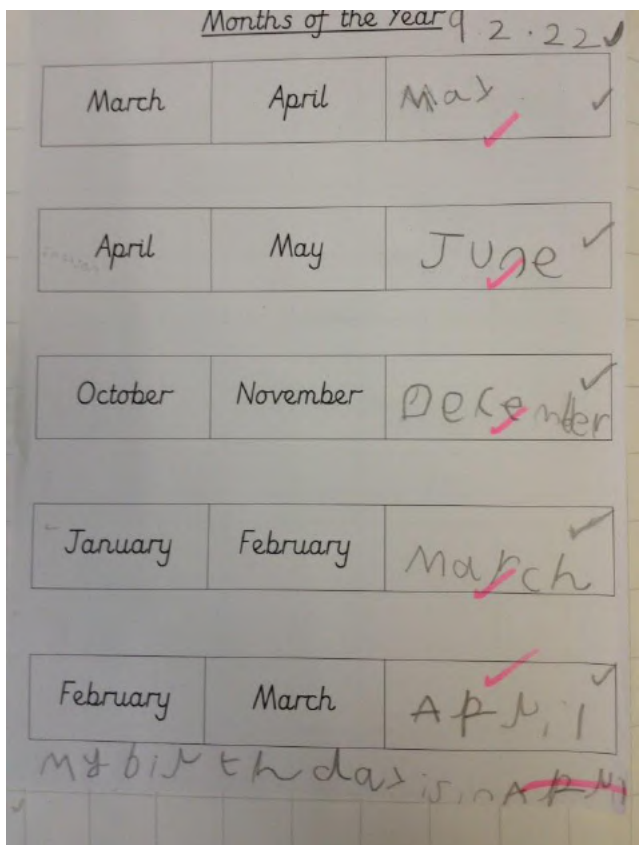 Months of the Year 9.2.22
March April May
April May June
October November December
January February March
February March April
My birthday is in April